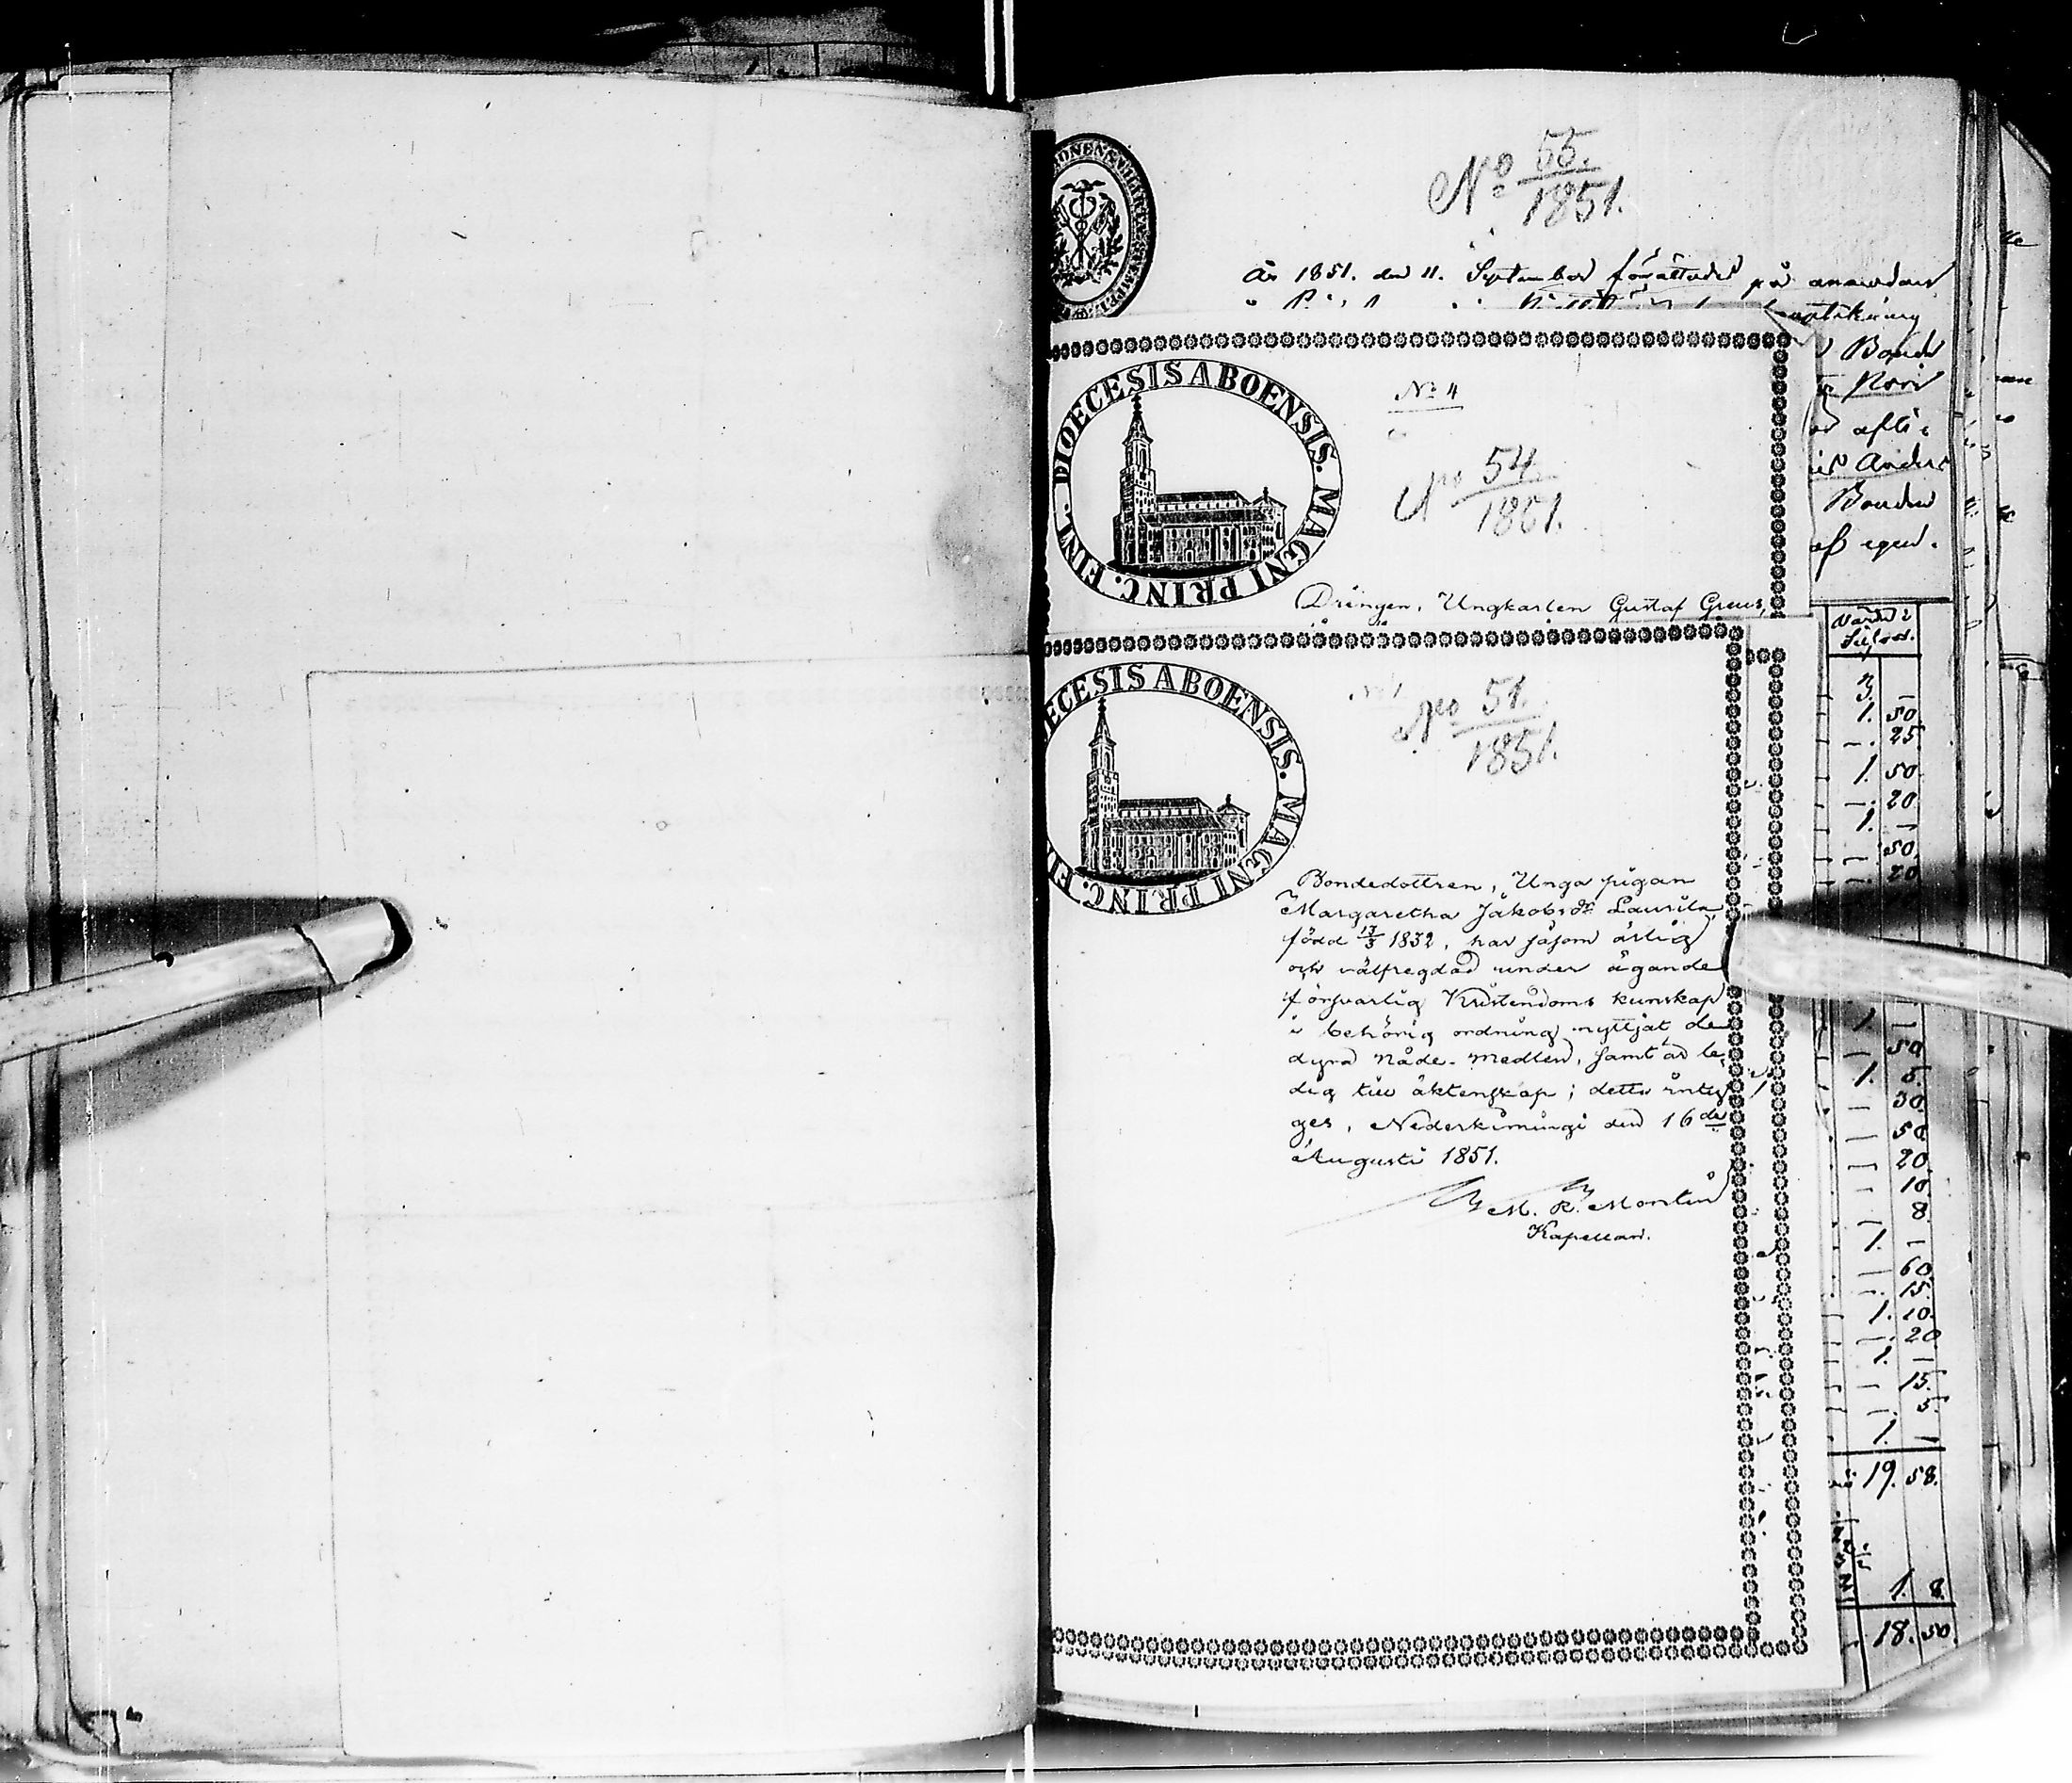 No 55.
1851.
År 1851. den 11. September förrättades på anmodan
Bonde
afli
Anders
Bonden
af egen.
DIOECESIS ABOENSIS. MAGNI PRINC. FINL.
No 4
No 54.
1851.
Drängen, Ungkarlen Gustaf Greus,
ECESIS ABOENSIS. MAGNI PRINC. FI
No 51.
1851.
Bondedottren, Unga pigan
Margaretha Jakobsdr Laurila,
född 17/3 1832, har såsom ärlig
och välfregdad under ägande
försvarlig Kristendoms kunskap
i behörig ordning nyttjat de
dyra Nåde-medlen, samt är le
dig till äktenskap; detta intyg
ges, Nederkimingi den 16de
Augusti 1851.
M. R. Montin
Kapellan.
Värde i
Silfver.
3. —
1. 50
— 25
1. 50
— 20
1. —
— 50
— 20
1. —
— 50
1. 5.
— 30
— 50
— 20
10
8
1. —
— 60
— 15
1. 10
— 20
1. —
— 15.
— 5.
1. —
19. 58.
1. 8.
18. 50